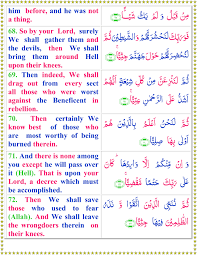 him before, and he was not
a thing.
68. So by your Lord, surely
We shall gather them and
the devils, then We shall
bring them around Hell
upon their knees.
69. Then indeed, We shall
drag out from every sect
all those who were worst
against the Beneficent in
rebellion.
70. Then certainly We
know best of those who
are most worthy of being
burned therein.
71. And there is none among
you except he will pass over
it (Hell). That is upon your
Lord, a decree which must
be accomplished.
72. Then We shall save
those who used to fear
(Allah). And We shall leave
the wrongdoers therein on
their knees.
مِنْ قَبْلُ وَلَمْ يَكُ شَيْئًا
فَوَرَبِّكَ لَنَحْشُرَنَّهُمْ وَالشَّيٰطِيْنَ
ثُمَّ لَنُحْضِرَنَّهُمْ حَوْلَ جَهَنَّمَ
جِثِيًّا
ثُمَّ لَنَنْزِعَنَّ مِنْ كُلِّ شِيْعَةٍ اَيُّهُمْ
اَشَدُّ عَلَى الرَّحْمٰنِ عِتِيًّا
ثُمَّ لَنَحْنُ اَعْلَمُ بِالَّذِيْنَ هُمْ
اَوْلٰى بِهَا صِلِيًّا
وَاِنْ مِّنْكُمْ اِلَّا وَارِدُهَا كَانَ
عَلٰى رَبِّكَ حَتْمًا مَّقْضِيًّا
ثُمَّ نُنَجِّى الَّذِيْنَ اتَّقَوْا وَّنَذَرُ
الظّٰلِمِيْنَ فِيْهَا جِثِيًّا